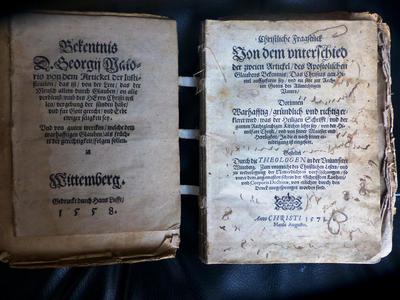 Bekentnis
D. Georgij Maio-
ris von dem Artickel der Justi-
fication / das ist / von der Lere / das der
Mensch allein durch Glauben / on alle
verdienst / umb des HErrn Christi wil-
len / vergebung der sünden habe /
und für Gott gerecht / und Erbe
ewiger seligkeit sey.
Und von guten wercken / welche dem
warhafftigen Glauben / als früch-
te der gerechtigkeit / folgen sollen.
Wittemberg.
Gedruckt durch Hans Lufft /
1558.
Christliche Fragstück
Von dem unterschied
der zweien Artickel / des Apostolischen
Glaubens Bekentnis / Das Christus gen Hi-
mel auffgefaren sey / und nu sitze zur Rech-
ten Gottes des Allmechtigen
Vaters /
Dorinnen
Warhafftig / gründlich und richtig er-
kleret wird / was der Heiligen Schrifft / und der
gantzen Rechtgleubigen Kirchen lehre sey / von der Hi-
melfart Christi / und von seiner Maiestet und
Herrligkeit / In die er nach seiner er-
niedrigung ist eingesetzt.
Gestellet
Durch die THEOLOGEN in der Universitet
Anno CHRISTI 1571
Mense Augusto.